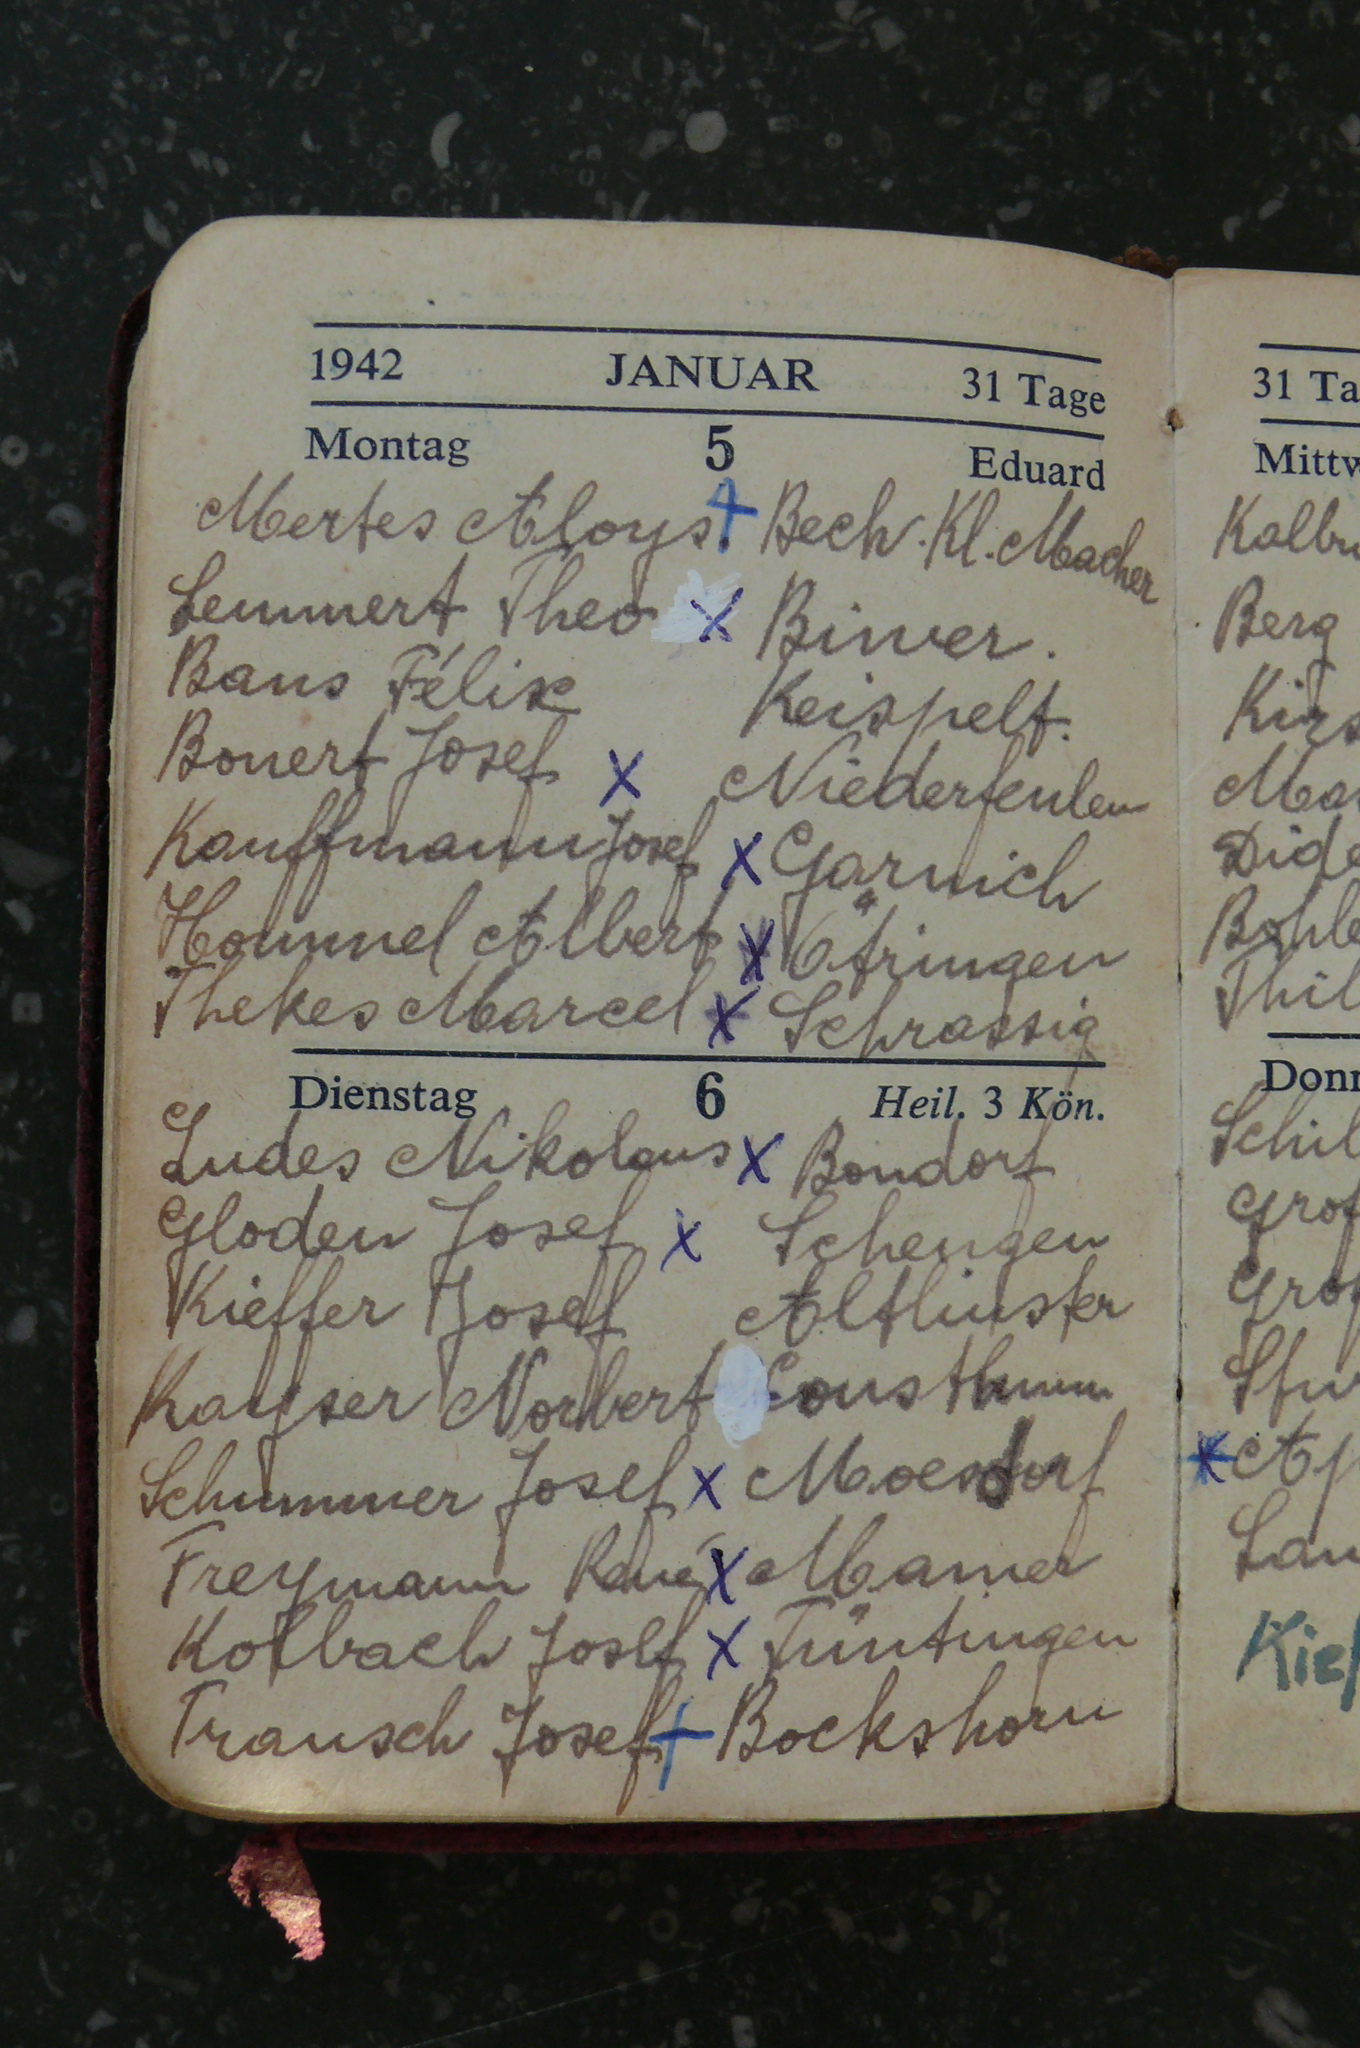 1942 JANUAR 31 Tage
Montag 5 Eduard
Mertes Aloys + Bech. Kl. Macher
Lemmert Theo x Biwer.
Baus Félix Keispelt.
Bonert Josef x Niederfeulen
Kauffmann Josef x Garnich
Hommel Albert x Ötringen
Thekes Marcel x Schrassig
Dienstag 6 Heil. 3 Kön.
Ludes Nikolaus x Bondorf
Gloden Josef x Schengen
Kieffer Josef Altlinster
Kayser Norbert Consthum
Schummer Josef x Moesdorf
Freymann René x Mamer
Kolbach Josef x Tüntingen
Trausch Josef + Bockshorn
31 Ta
Mittw
Kalbu
Berg
Kirs
Ma
Dide
Bohle
Thil
Donn
Schil
Grof
Grof
Stu
x Ap
Lau
Kief